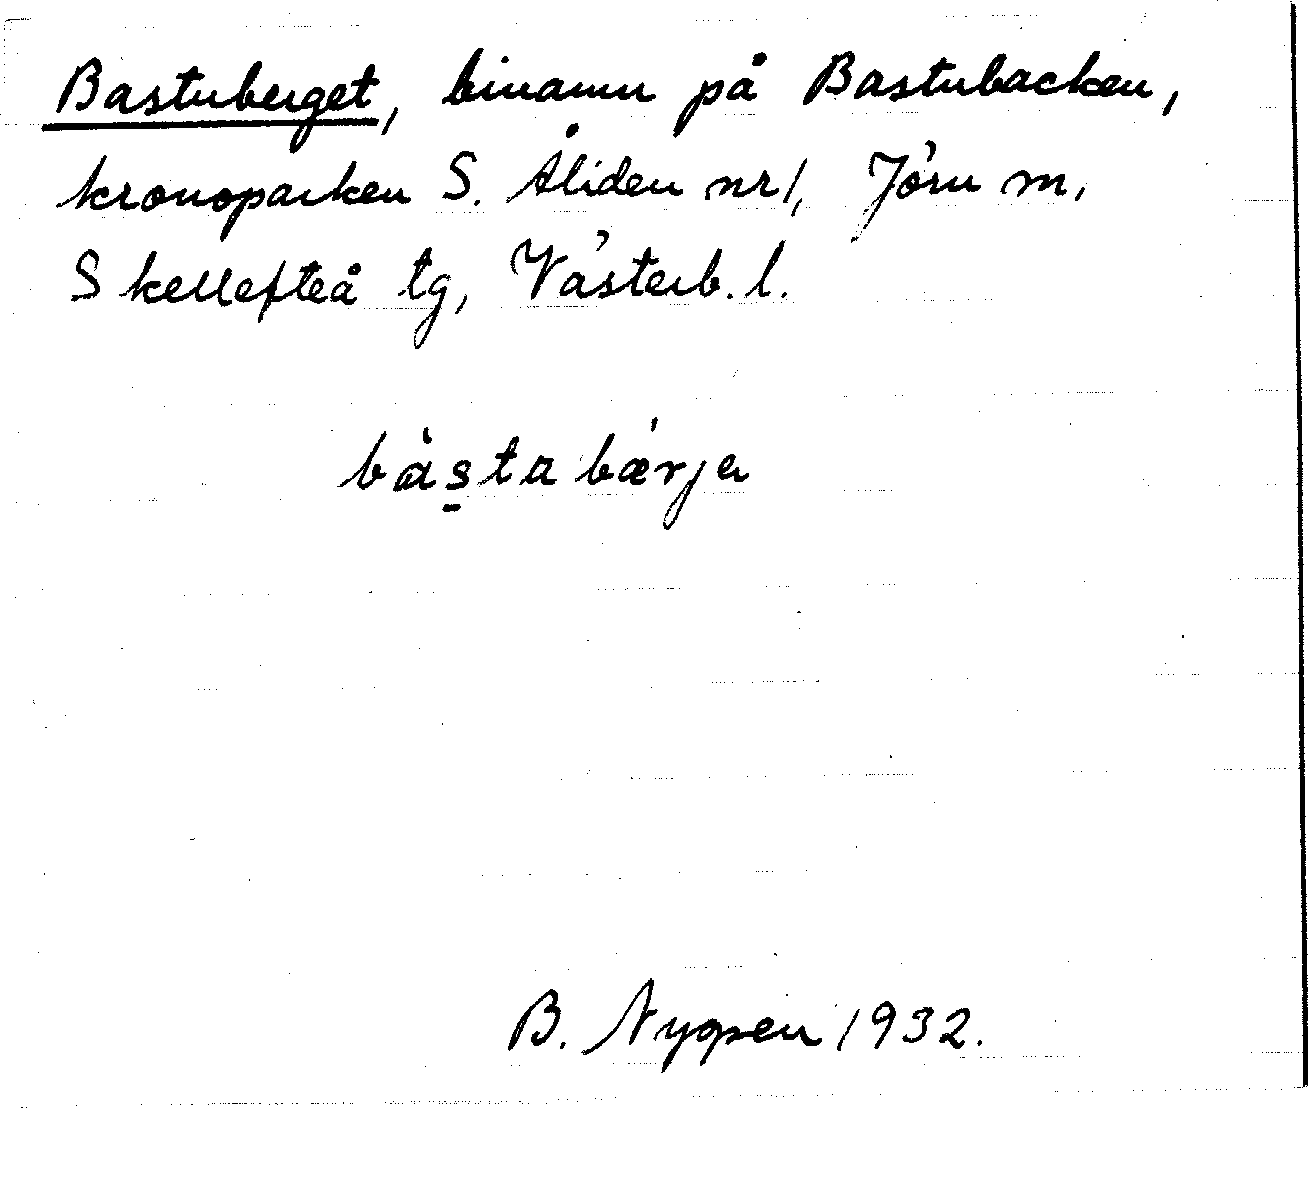 Bastuberget, binamn på Bastubacken,
kronoparken S. Åliden nr 1, Jörn sn,
Skellefteå tg, Västerb. l.
bàs̱ta bǽrja
B. 1932.